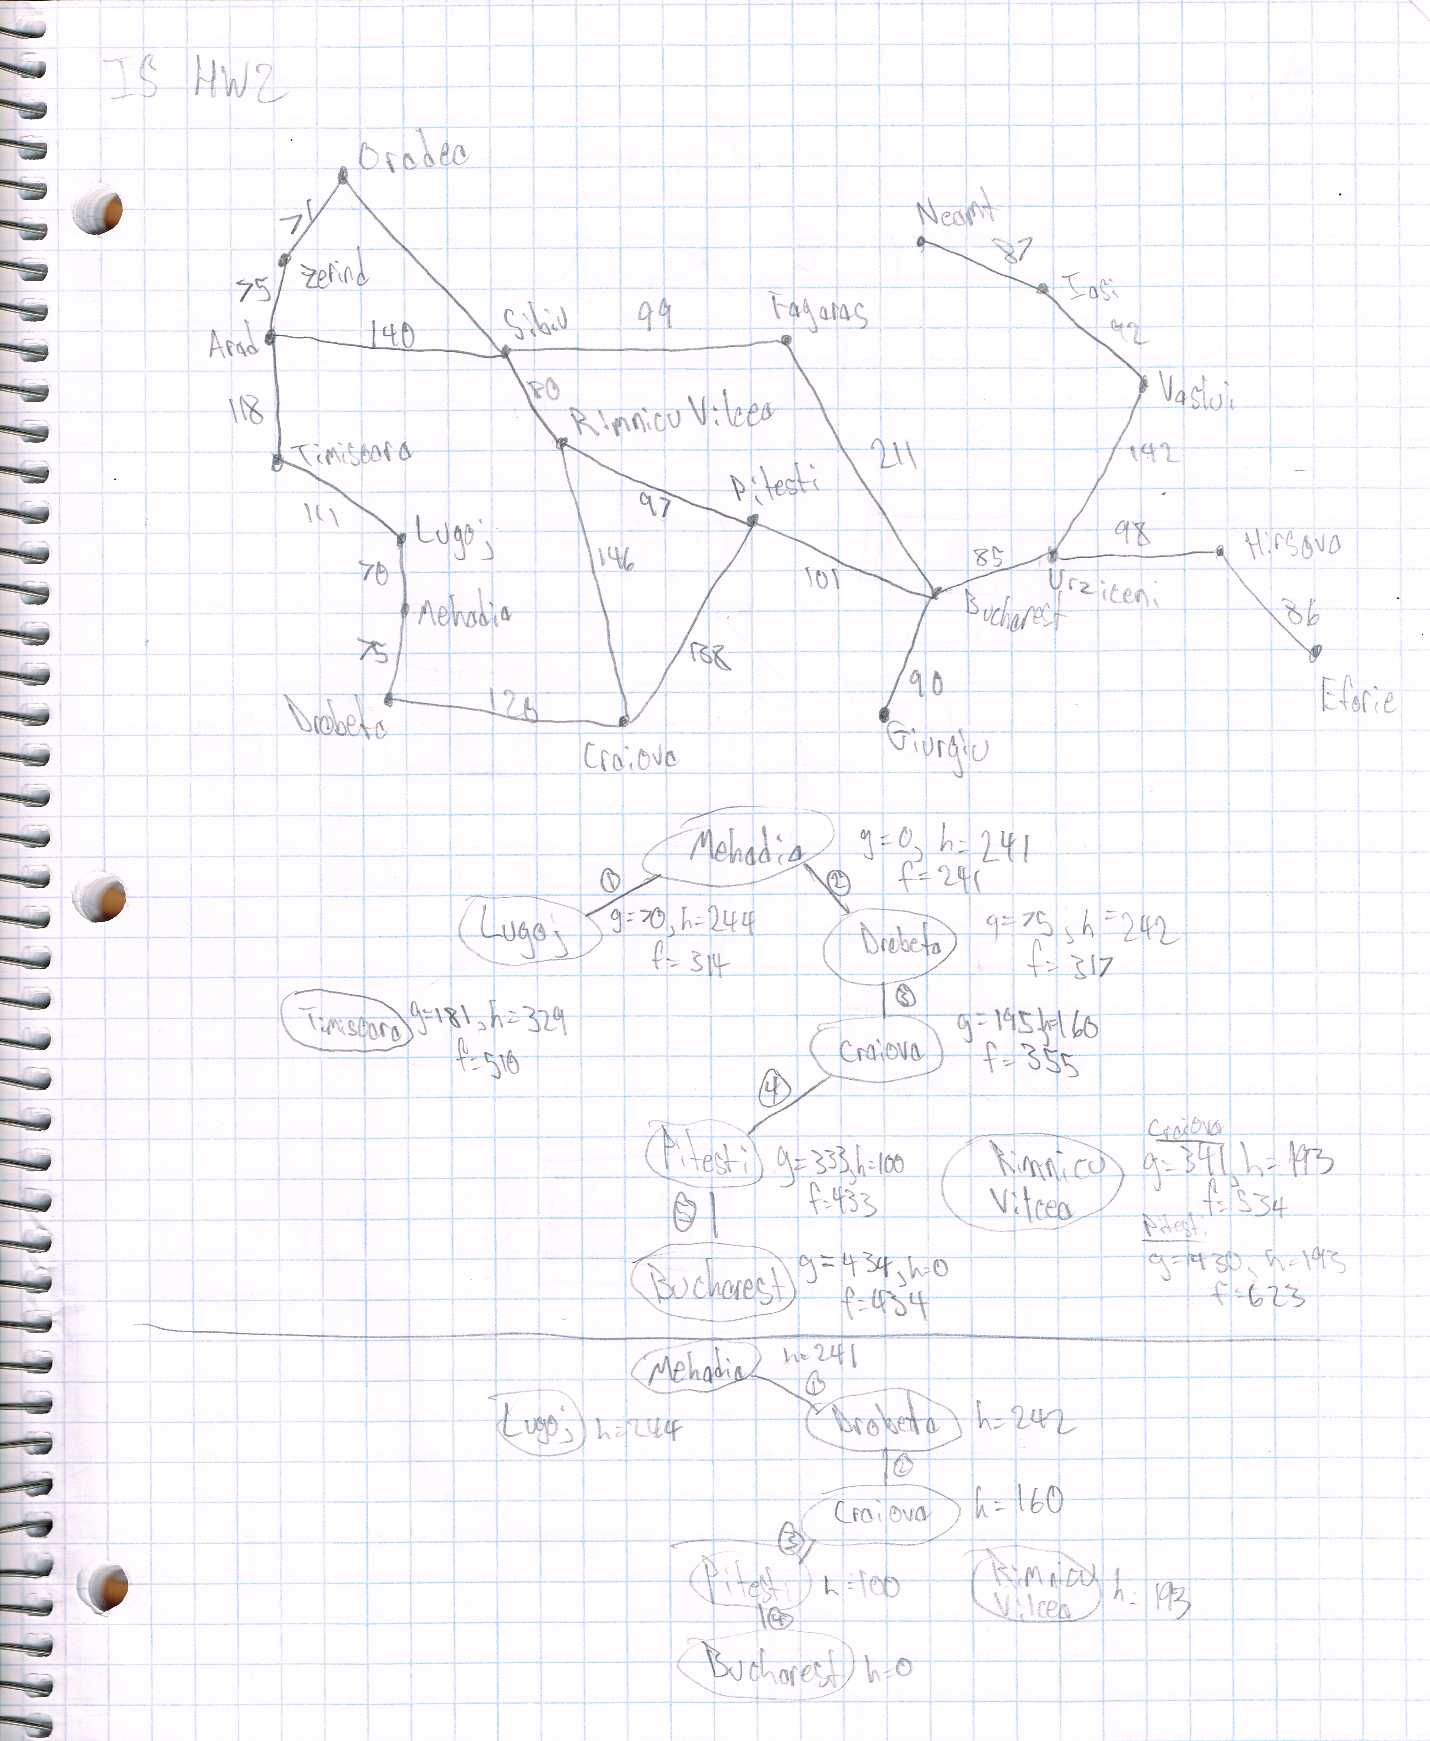 IS HW2
Oradea
71
Zerind
75
Arad
140
Sibiu
99
Fagaras
118
80
Rimnicu Vilcea
Timisoara
111
Lugoj
70
Mehadia
75
Drobeta
120
Craiova
146
97
Pitesti
138
101
211
Bucharest
85
Urziceni
90
Giurgiu
Neamt
87
Iasi
92
Vaslui
142
98
Hirsova
86
Eforie
Mehadia g=0, h=241
f=241
1
2
Lugoj g=70, h=244
f=314
Drobeta g=75, h=242
f=317
3
Timisoara g=181, h=329
f=510
Craiova g=195, h=160
f=355
4
Pitesti g=333, h=100
f=433
Rimnicu
Vilcea
Craiova
g=341, h=193
f=534
Pitesti
g=430, h=193
f=623
5
Bucharest g=434, h=0
f=434
Mehadia h=241
1
Lugoj h=244
Drobeta h=242
2
Craiova h=160
3
Pitesti h=100
Rimnicu
Vilcea h=193
4
Bucharest h=0